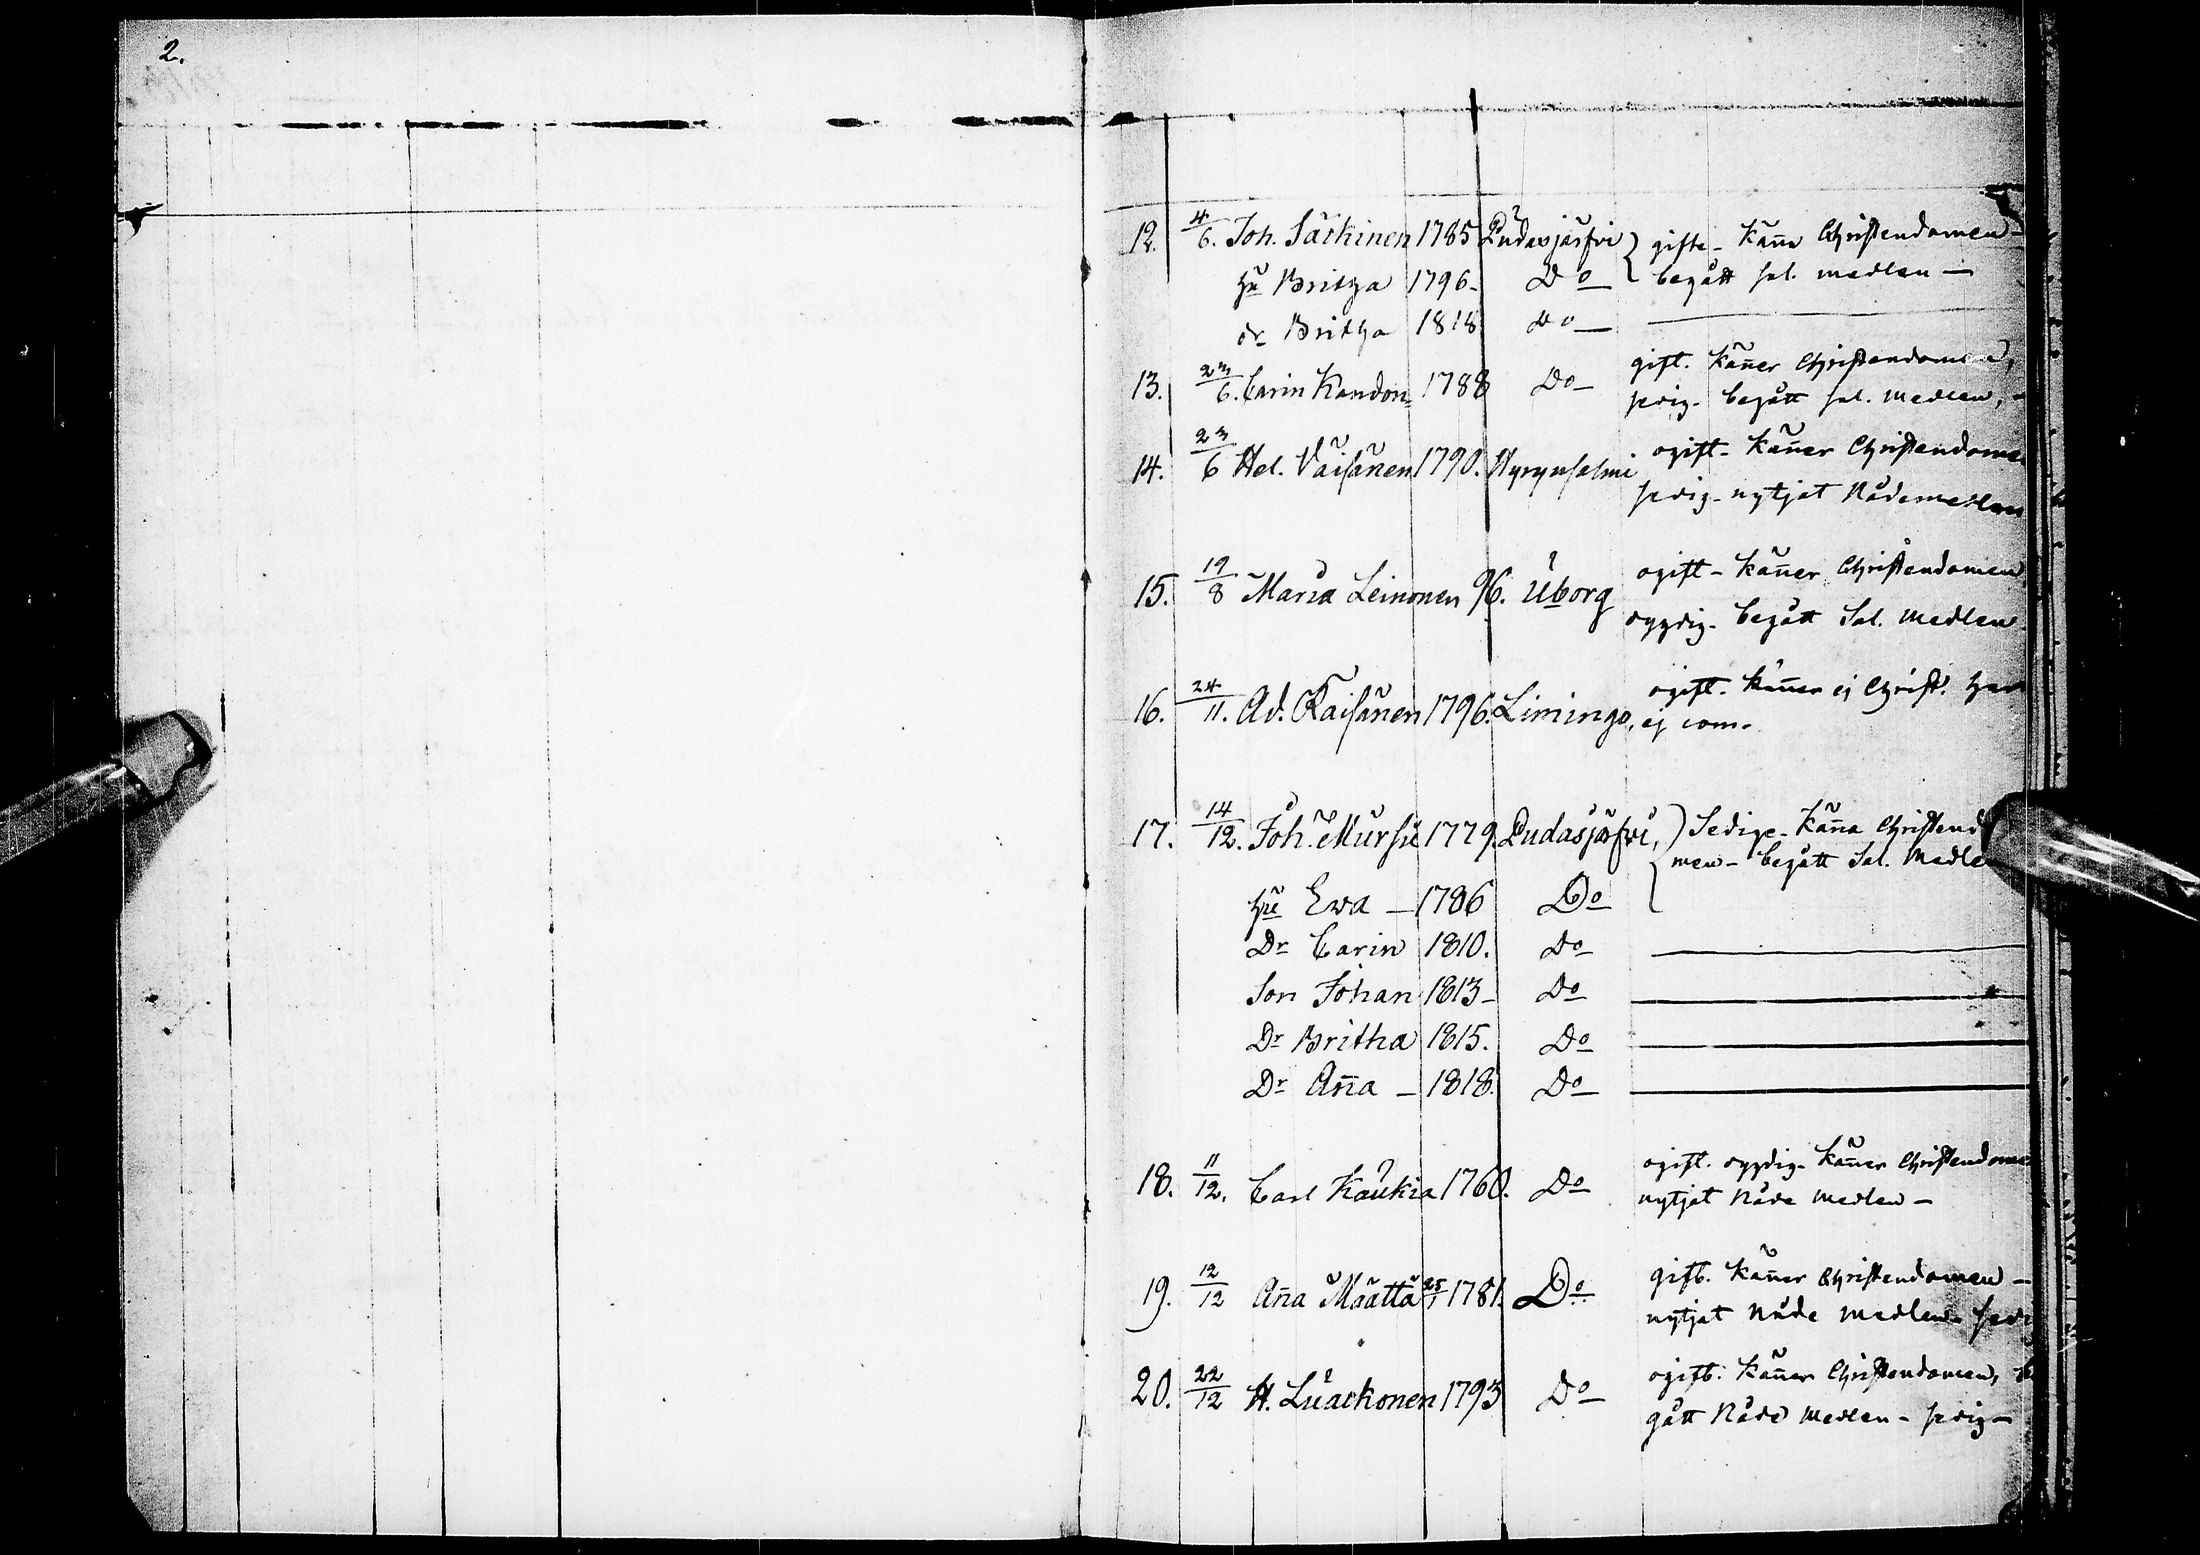 2.
12. 4/6. Joh. Särkinen 1785 Pudasjärfvi } gifte - känna Christendomen -
hu Britha 1796 - Do begått sal. medlen -
dr Britha 1818 do
13. 23/6. Carin Kandon= 1788 Do gift. känner Christendomen,
sedig - begått sal. medlen,
14. 23/6 Hel. Väisänen 1790. Hyrynsalmi ogift - känner Christendome
sedig - nytjat Nådemedlen
15. 19/8 Maria Leinonen 96. Uborg ogift - känner Christendomen
begått Sal. medlen
16. 24/11. Ad. Raisänen 1796. Limingo, ogift. känner ej Christ. har
ej com.
17. 14/12. Joh. Mursu 1779. Pudasjärfvi, } Sedige - känna Christend
men - begått Sal. Medle
hu Ewa - 1786 Do
Dr Carin 1810. Do
Son Johan 1813 - Do
Dr Britha 1815. Do
Dr Anna - 1818. Do
18. 11/12. Carl Kaukia 1760. Do ogift. känner Christendome
nytjat Nåde medlen -
19. 12/12 Anna Määttä 25/1 1781. Do gift. känner Christendomen -
nytjat Nåde medlen sedi
20. 22/12 H. Luackonen 1793 Do ogift. känner Christendomen,
gått Nåde medlen - sedig -